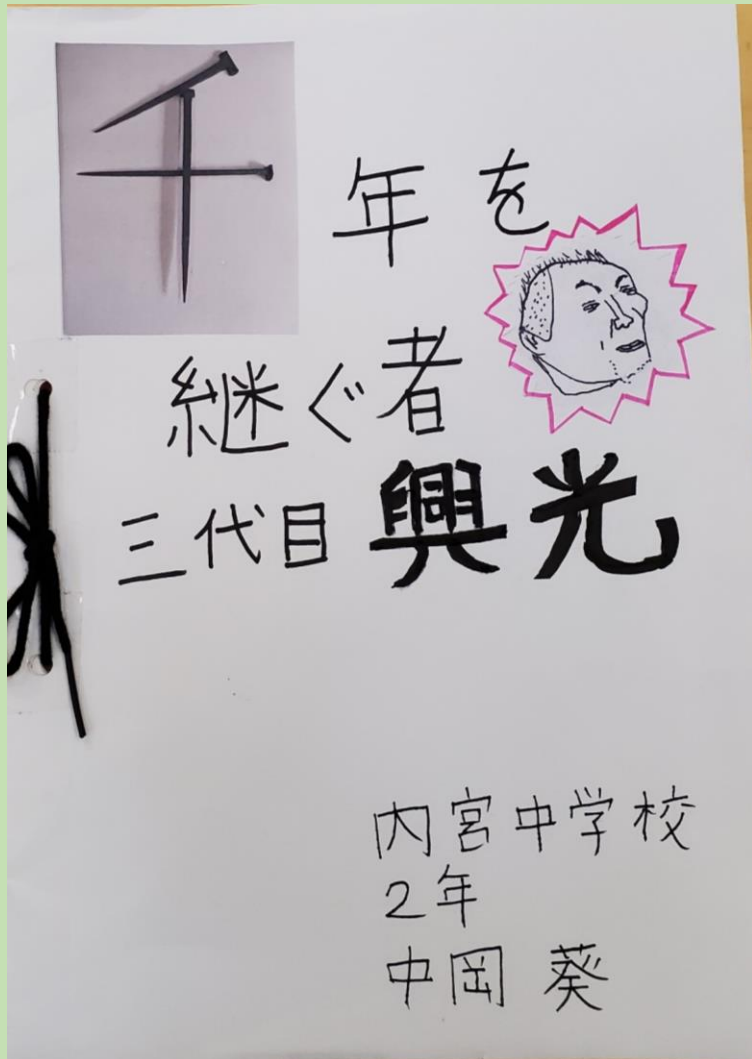 千年を
継ぐ者
三代目 興光
内宮中学校
2年
中岡 葵